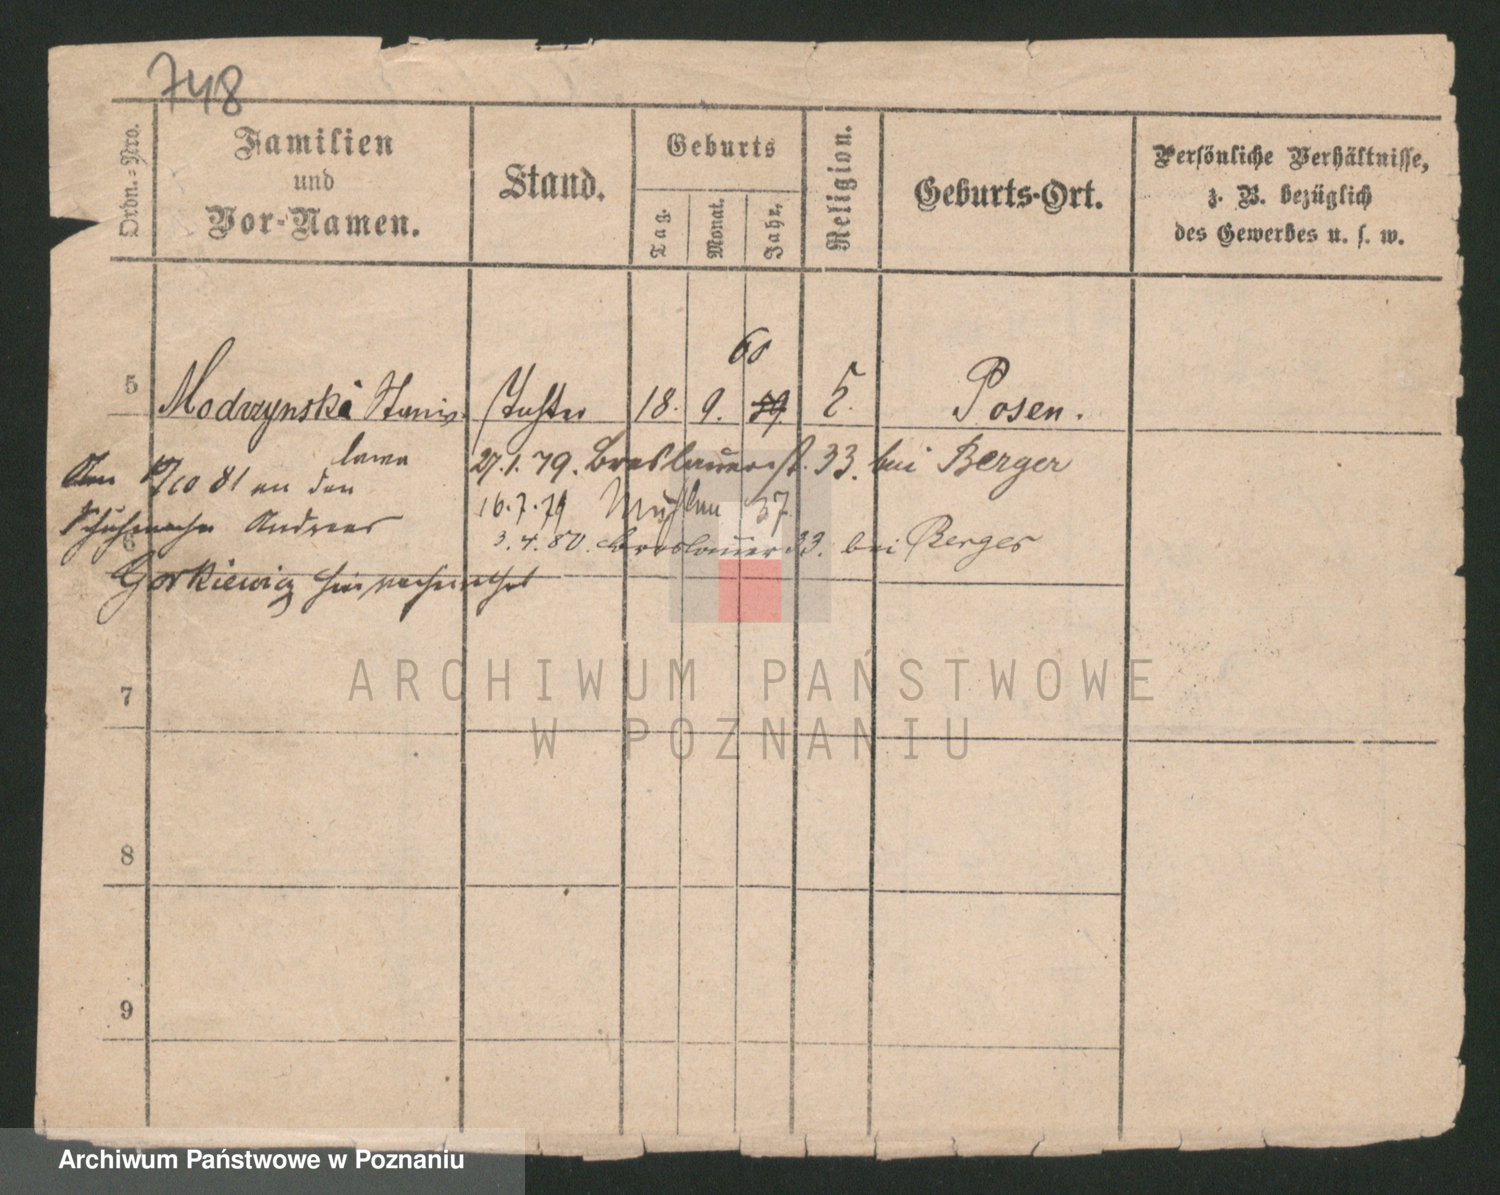 748
Ordn.-Nro.
Familien
und
Vor-Namen.
Stand.
Geburts
Tag.
Monat.
Jahr.
Religion.
Geburts-Ort.
Persönliche Verhältnisse,
z. B. bezüglich
des Gewerbes u. s. w.
60
5 Modrzynski Stanis- Tochter 18. 9. 59. Posen.
lawa
27.1.79. Breslauerst. 33. bei Berger
Am /10 81 an den
16.7.79 Mühlen 37
Andreas
6
3.4.80. Breslauer 33. bei Berger
Gorkiewicz hier verheirathet
7
8
9
ARCHIWUM PAŃSTWOWE
W POZNANIU
Archiwum Państwowe w Poznaniu